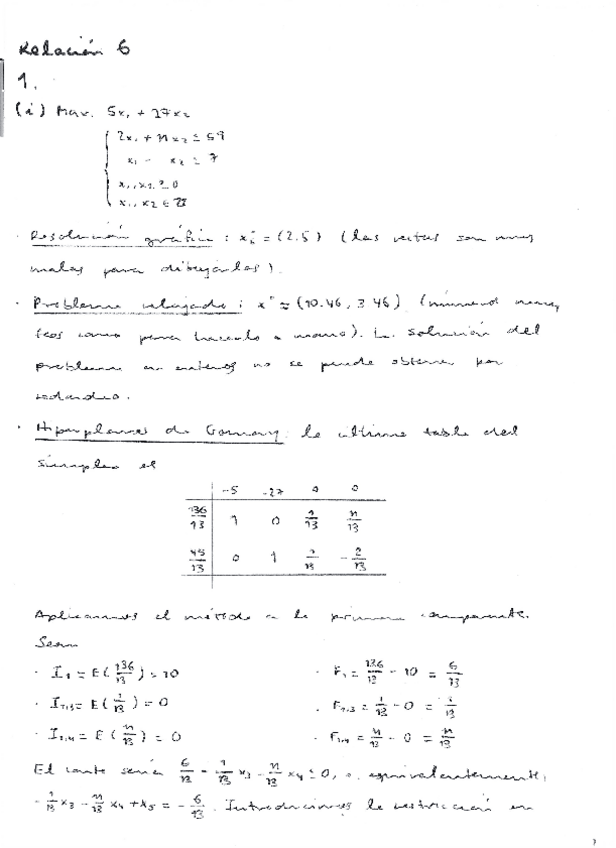 Relación 6
1.
(i) Max. 5x₁ + 27x₂
2x₁ + 11x₂ ≤ 59
x₁ - x₂ ≤ 7
x₁, x₂ ≥ 0
x₁, x₂ ∈ ℤ
· Resolución gráfica: = (2.5) (las rectas son muy
malas para dibujarlas).
· Problema relajado: x* ≈ (10.46, 3.46) (
como para hacerlo a mano). La solución del
problema en enteros no se puede obtener por
redondeo.
· Hiperplanos de Gomory: la última tabla del
simplex es
-5 -27 0 0
136/13 1 0 1/13 11/13
45/13 0 1 1/13 -2/13
Aplicamos el método a la primera componente.
Sean
· I₁ = E(136/13) = 10 · F₁ = 136/13 - 10 = 6/13
· I₁,₃ = E(1/13) = 0 · F₁,₃ = 1/13 - 0 = 1/13
· I₁,₄ = E(11/13) = 0 · F₁,₄ = 11/13 - 0 = 11/13
El corte sería 6/13 - 1/13 x₃ - 11/13 x₄ ≤ 0, o, equivalentemente,
- 1/13 x₃ - 11/13 x₄ + x₅ = - 6/13. Introducimos la restricción en